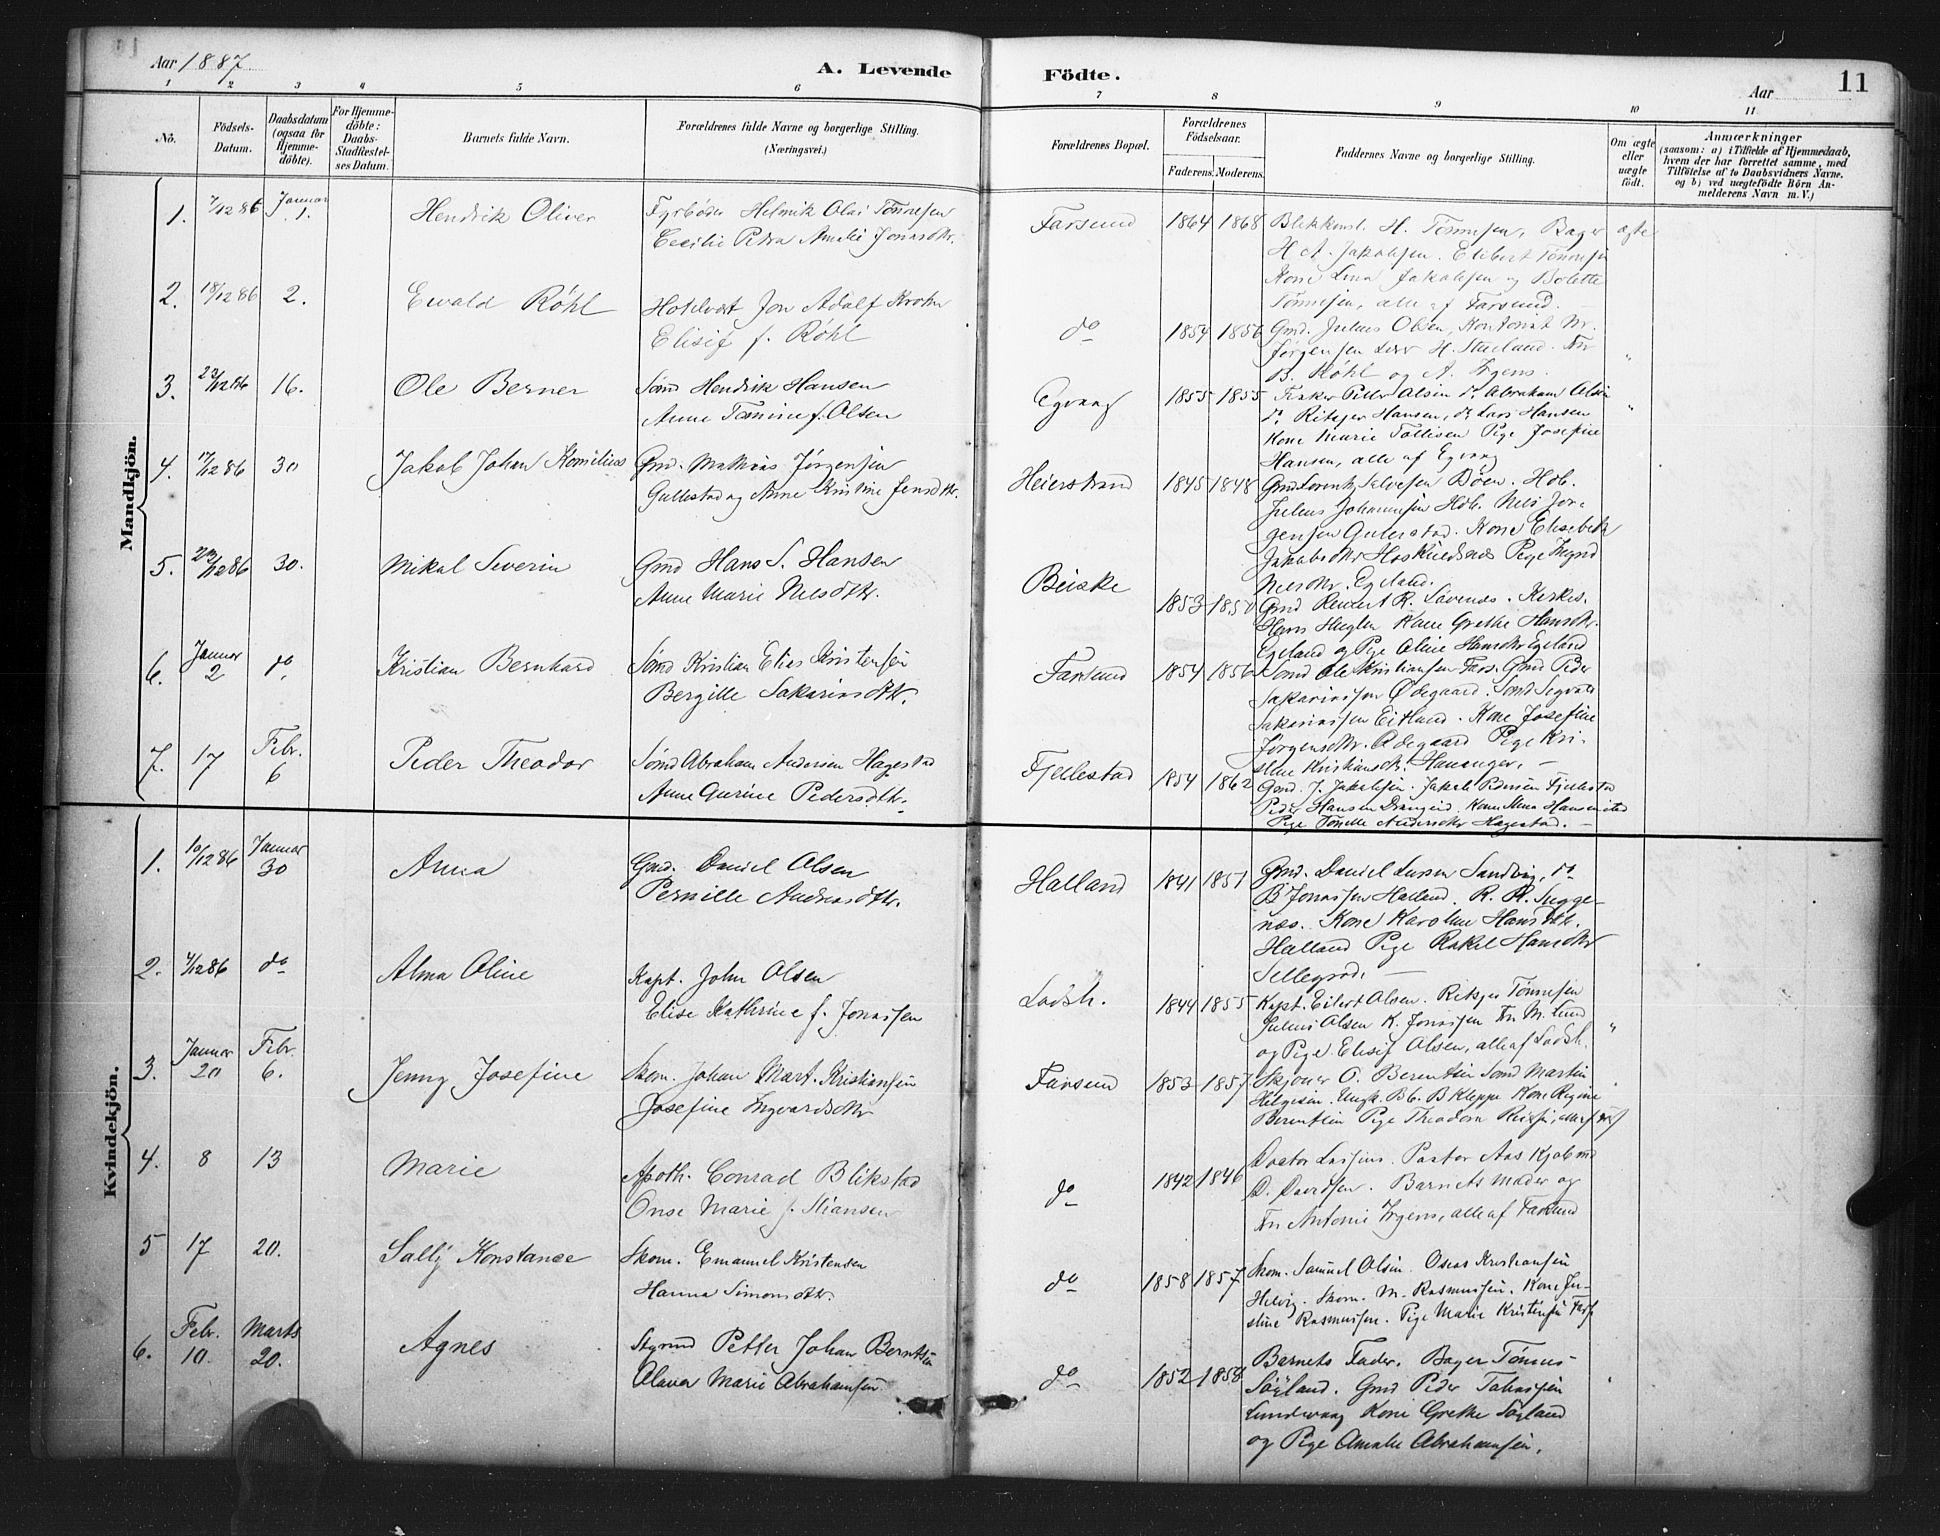 Aar 1887
A. Levende Födte.
Aar
11
1 2 3 4 5 6 7 8 9 10 11
No.
Födsels-Datum.
Daabsdatum (ogsaa for Hjemme-döbte).
For Hjemme-döbte: Daabs-Stadfestel-ses Datum.
Barnets fulde Navn.
Forældrenes fulde Navne og borgerlige Stilling. (Næringsvei.)
Forældrenes Bopæl.
Forældrenes Födselsaar.
Faderens. Moderens.
Faddernes Navne og borgerlige Stilling.
Om ægte eller uægte født.
Anmærkninger
(saasom: a) i Tilfælde af Hjemmedaab,
hvem der har forrettet samme, med
Tilföielse af to Daabsvidners Navne.
og b) ved uægtefödte Börn An-
melderens Navn m. V.)
Mandkjön.
1. 7/12 86 Januar 1. Hendrik Oliver
Fyrböder Helmik Olai Tönnesen
Cecilie Petra Amelie Jonasdtr.
Farsund 1864 1868
H. Tönnesen, Bager
H. A. Jakobsen. Elibert Tönnesen
Kone Lina Jakobsen og Bolette
Tönnesen, alle af Farsund.
ægte
2. 18/12 86 2. Ewald Röhl
Hotelvert Jon Adolf Krohn
Elisif f. Röhl
do 1854 1856
Gmd. Julius Olsen, Kontorist Hr.
Jørgensen H. Stueland. Fr.
B. Röhl og A. Irgens.
"
3. 23/12 86 16. Ole Berner
Sömd Hendrik Hansen
Anne Tomine f. Olsen
Egvaag 1855 1855
Fisker Peder Olsen do Abraham Olsen
do Ritsjer Hansen, do Lars Hansen
Kone Marie Tollisen Pige Josefine
Hansen, alle af Egvaag
"
4. 17/12 86 30 Jakob Johan Kornelius
Gmd. Mathias Jørgensen
Gullestad og Anne Kristine Jensdtr.
Heierstrand 1845 1848
Gmd Lorentz Salvesen Böen. Hdb.
Julius Johannesen Hdb. Nils Jør-
gensen Gulestad. Kone Elisabeth
Jakobsdtr Pige
Nilsdtr. Egeland.
5. 23/12 86 30. Mikal Severin
Gmd Hans S. Hansen
Anne Marie Nilsdtr.
Beiske 1853 1850
Gmd R.
Hans Kone Grethe Hansdtr.
Egeland og Pige Aline Hansdtr Egeland
6. Januar 2 do. Kristian Bernhard
Sömd Kristian Elias Kristensen
Bergitte Sakariasdtr.
Farsund 1854 1856
Sömd Ole Kristiansen Fars. Gmd Peder
Sakariassen Ödegaard. Sömd
Sakariassen Eitland. Kone Josefine
Jørgensdtr. Ödegaard Pige Kri-
stine Kristiansdtr. Hananger. —
7. 17 Febr. 6 Peder Theodor
Sömd Abraham Andersen Hagestad
Anne Gurine Pedersdtr.
Fjellestad 1854 1862
Gmd. J. Jakobsen. Jakob Pedersen Fjellestad
Peder Hansen Kone
Pige Tönille Andersdtr Hagestad. —
Kvindekjön.
1. 10/12 86 Januar 30 Anna
Gmd. Daniel Olsen
Pernille Andreasdtr.
Halland 1841 1851
Gmd. Daniel Larsen Sandvig, do
B Jonassen Halland. R. R. Sigge-
næs. Kone Karoline Hansdtr.
Halland Pige Rakel Hansdtr
Sellegrod. —
2. 4/12 86 do Alma Oline
Kapt. John Olsen
Elise Kathrine f. Jonassen
Ladsh. 1844 1855
Kapt. Eilert Olsen. Ritsjer Tönnesen
Julius Olsen K. Jonassen Fr. M. Lund
og Pige Elisif Olsen, alle af Ladsh.
"
3. Januar 20 Febr. 6. Jenny Josefine
Skom. Johan Mart. Kristiansen
Josefine Ingvardsdtr
Farsund 1853 1857
O. Berentsen Sömd Martin
Helgesen. Ungk. B. C. B Kleppe Kone Regine
Berentsen Pige Theodora
4. 8 13 Marie
Apoth. Conrad Blikstad
Onse Marie f. Stiansen
do 1842 1846
Doctor Pastor Aas
D. Davidsen. Barnets Moder og
Fr. Antonie Irgens, alle af Farsund
5 17 20. Sally Konstance
Skom. Emanuel Kristensen
Hanna Simonsdtr.
do 1858 1857
Skom. Samuel Olsen. Oskar Kristiansen
Helvig. Skom. M. Rasmussen. Kone Ju-
stine Rasmussen. Pige Marie Kristensen Fars
6. Febr. 10. Marts 20. Agnes
Styrmd Petter Johan Berntsen
Olava Marie Abrahamsen.
do 1852 1858
Barnets Fader. Bager Tönnes
Søyland. Gmd Peder Tobiassen
Lundevaag Kone Grethe Søyland
og Pige Amalie Abrahamsen.